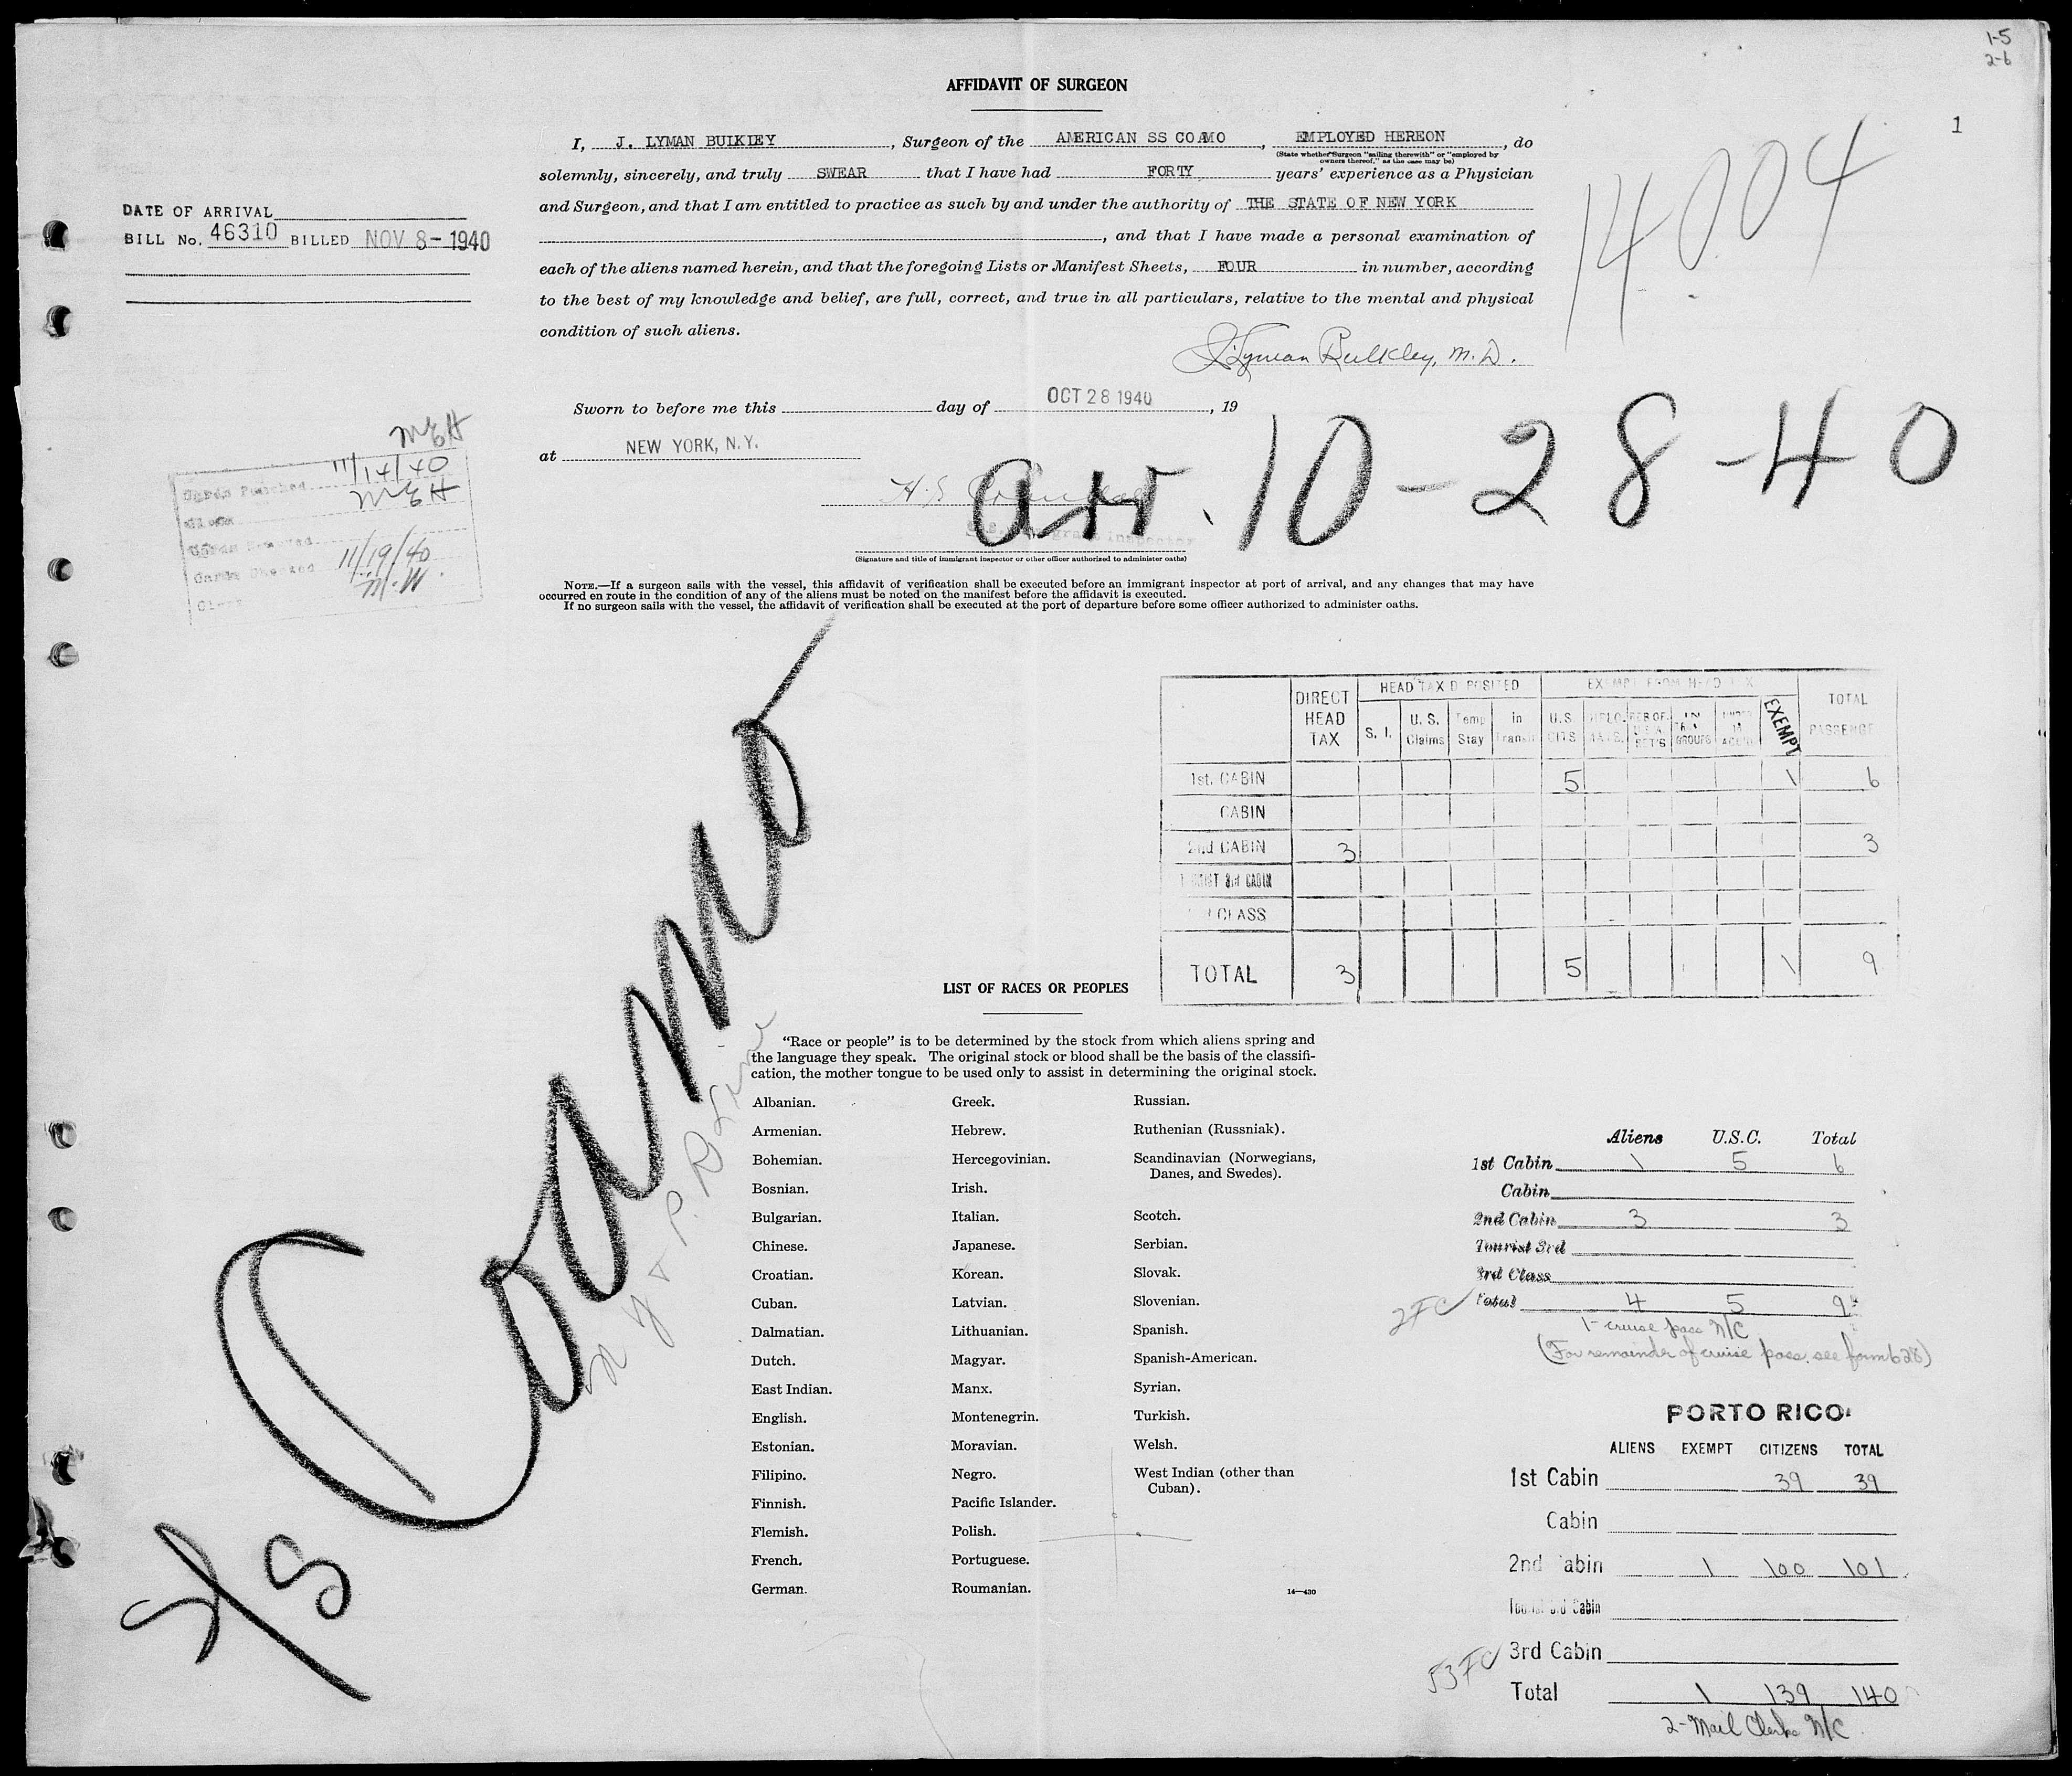 1-5
2-6
1
AFFIDAVIT OF SURGEON
I, J. LYMAN BULKLEY, Surgeon of the AMERICAN SS COAMO, EMPLOYED HEREON, do
(State whether "Surgeon sailing therewith" or "employed by
owners thereof," as the case may be)
solemnly, sincerely, and truly SWEAR that I have had FORTY years' experience as a Physician
and Surgeon, and that I am entitled to practice as such by and under the authority of THE STATE OF NEW YORK
, and that I have made a personal examination of
each of the aliens named herein, and that the foregoing Lists or Manifest Sheets, FOUR in number, according
to the best of my knowledge and belief, are full, correct, and true in all particulars, relative to the mental and physical
condition of such aliens.
J Lyman Bulkley, M.D.
14004
DATE OF ARRIVAL
BILL No. 46310 BILLED NOV 8-1940
Sworn to before me this day of OCT 28 1940, 19
at NEW YORK, N.Y.
arr. 10-28-40
Inspector
(Signature and title of immigrant inspector or other officer authorized to administer oaths)
MEH
Cards Punched 11/14/40
Clerk MEH
Cards Checked 11/19/40
Clerk M.W.
NOTE.—If a surgeon sails with the vessel, this affidavit of verification shall be executed before an immigrant inspector at port of arrival, and any changes that may have
occurred en route in the condition of any of the aliens must be noted on the manifest before the affidavit is executed.
If no surgeon sails with the vessel, the affidavit of verification shall be executed at the port of departure before some officer authorized to administer oaths.
S/S Coamo
DIRECT HEAD TAX HEAD TAX DEPOSITED EXEMPT FROM HEAD TAX TOTAL PASSENGE
S. I. U. S. Claims Temp Stay in Transit U.S. CITS IN TRA GROUPS EXEMPT
1st. CABIN 5 1 6
CABIN
2nd CABIN 3 3
TOURIST 3rd CABIN
CLASS
TOTAL 3 5 1 9
LIST OF RACES OR PEOPLES
"Race or people" is to be determined by the stock from which aliens spring and
the language they speak. The original stock or blood shall be the basis of the classifi-
cation, the mother tongue to be used only to assist in determining the original stock.
Albanian.
Armenian.
Bohemian.
Bosnian.
Bulgarian.
Chinese.
Croatian.
Cuban.
Dalmatian.
Dutch.
East Indian.
English.
Estonian.
Filipino.
Finnish.
Flemish.
French.
German.
Greek.
Hebrew.
Hercegovinian.
Irish.
Italian.
Japanese.
Korean.
Latvian.
Lithuanian.
Magyar.
Manx.
Montenegrin.
Moravian.
Negro.
Pacific Islander.
Polish.
Portuguese.
Roumanian.
Russian.
Ruthenian (Russniak).
Scandinavian (Norwegians,
Danes, and Swedes).
Scotch.
Serbian.
Slovak.
Slovenian.
Spanish.
Spanish-American.
Syrian.
Turkish.
Welsh.
West Indian (other than
Cuban).
14—430
Aliens U.S.C. Total
1st Cabin 1 5 6
Cabin
2nd Cabin 3 3
Tourist 3rd
3rd Class
2FC Total 4 5 9
1- cruise pass N/C
(For remainder of cruise pass. see form 628)
PORTO RICO
ALIENS EXEMPT CITIZENS TOTAL
1st Cabin 39 39
Cabin
2nd Cabin 1 100 101
Tourist 3rd Cabin
3rd Cabin
53FC
Total 1 139 140
2-Mail Clerks N/C